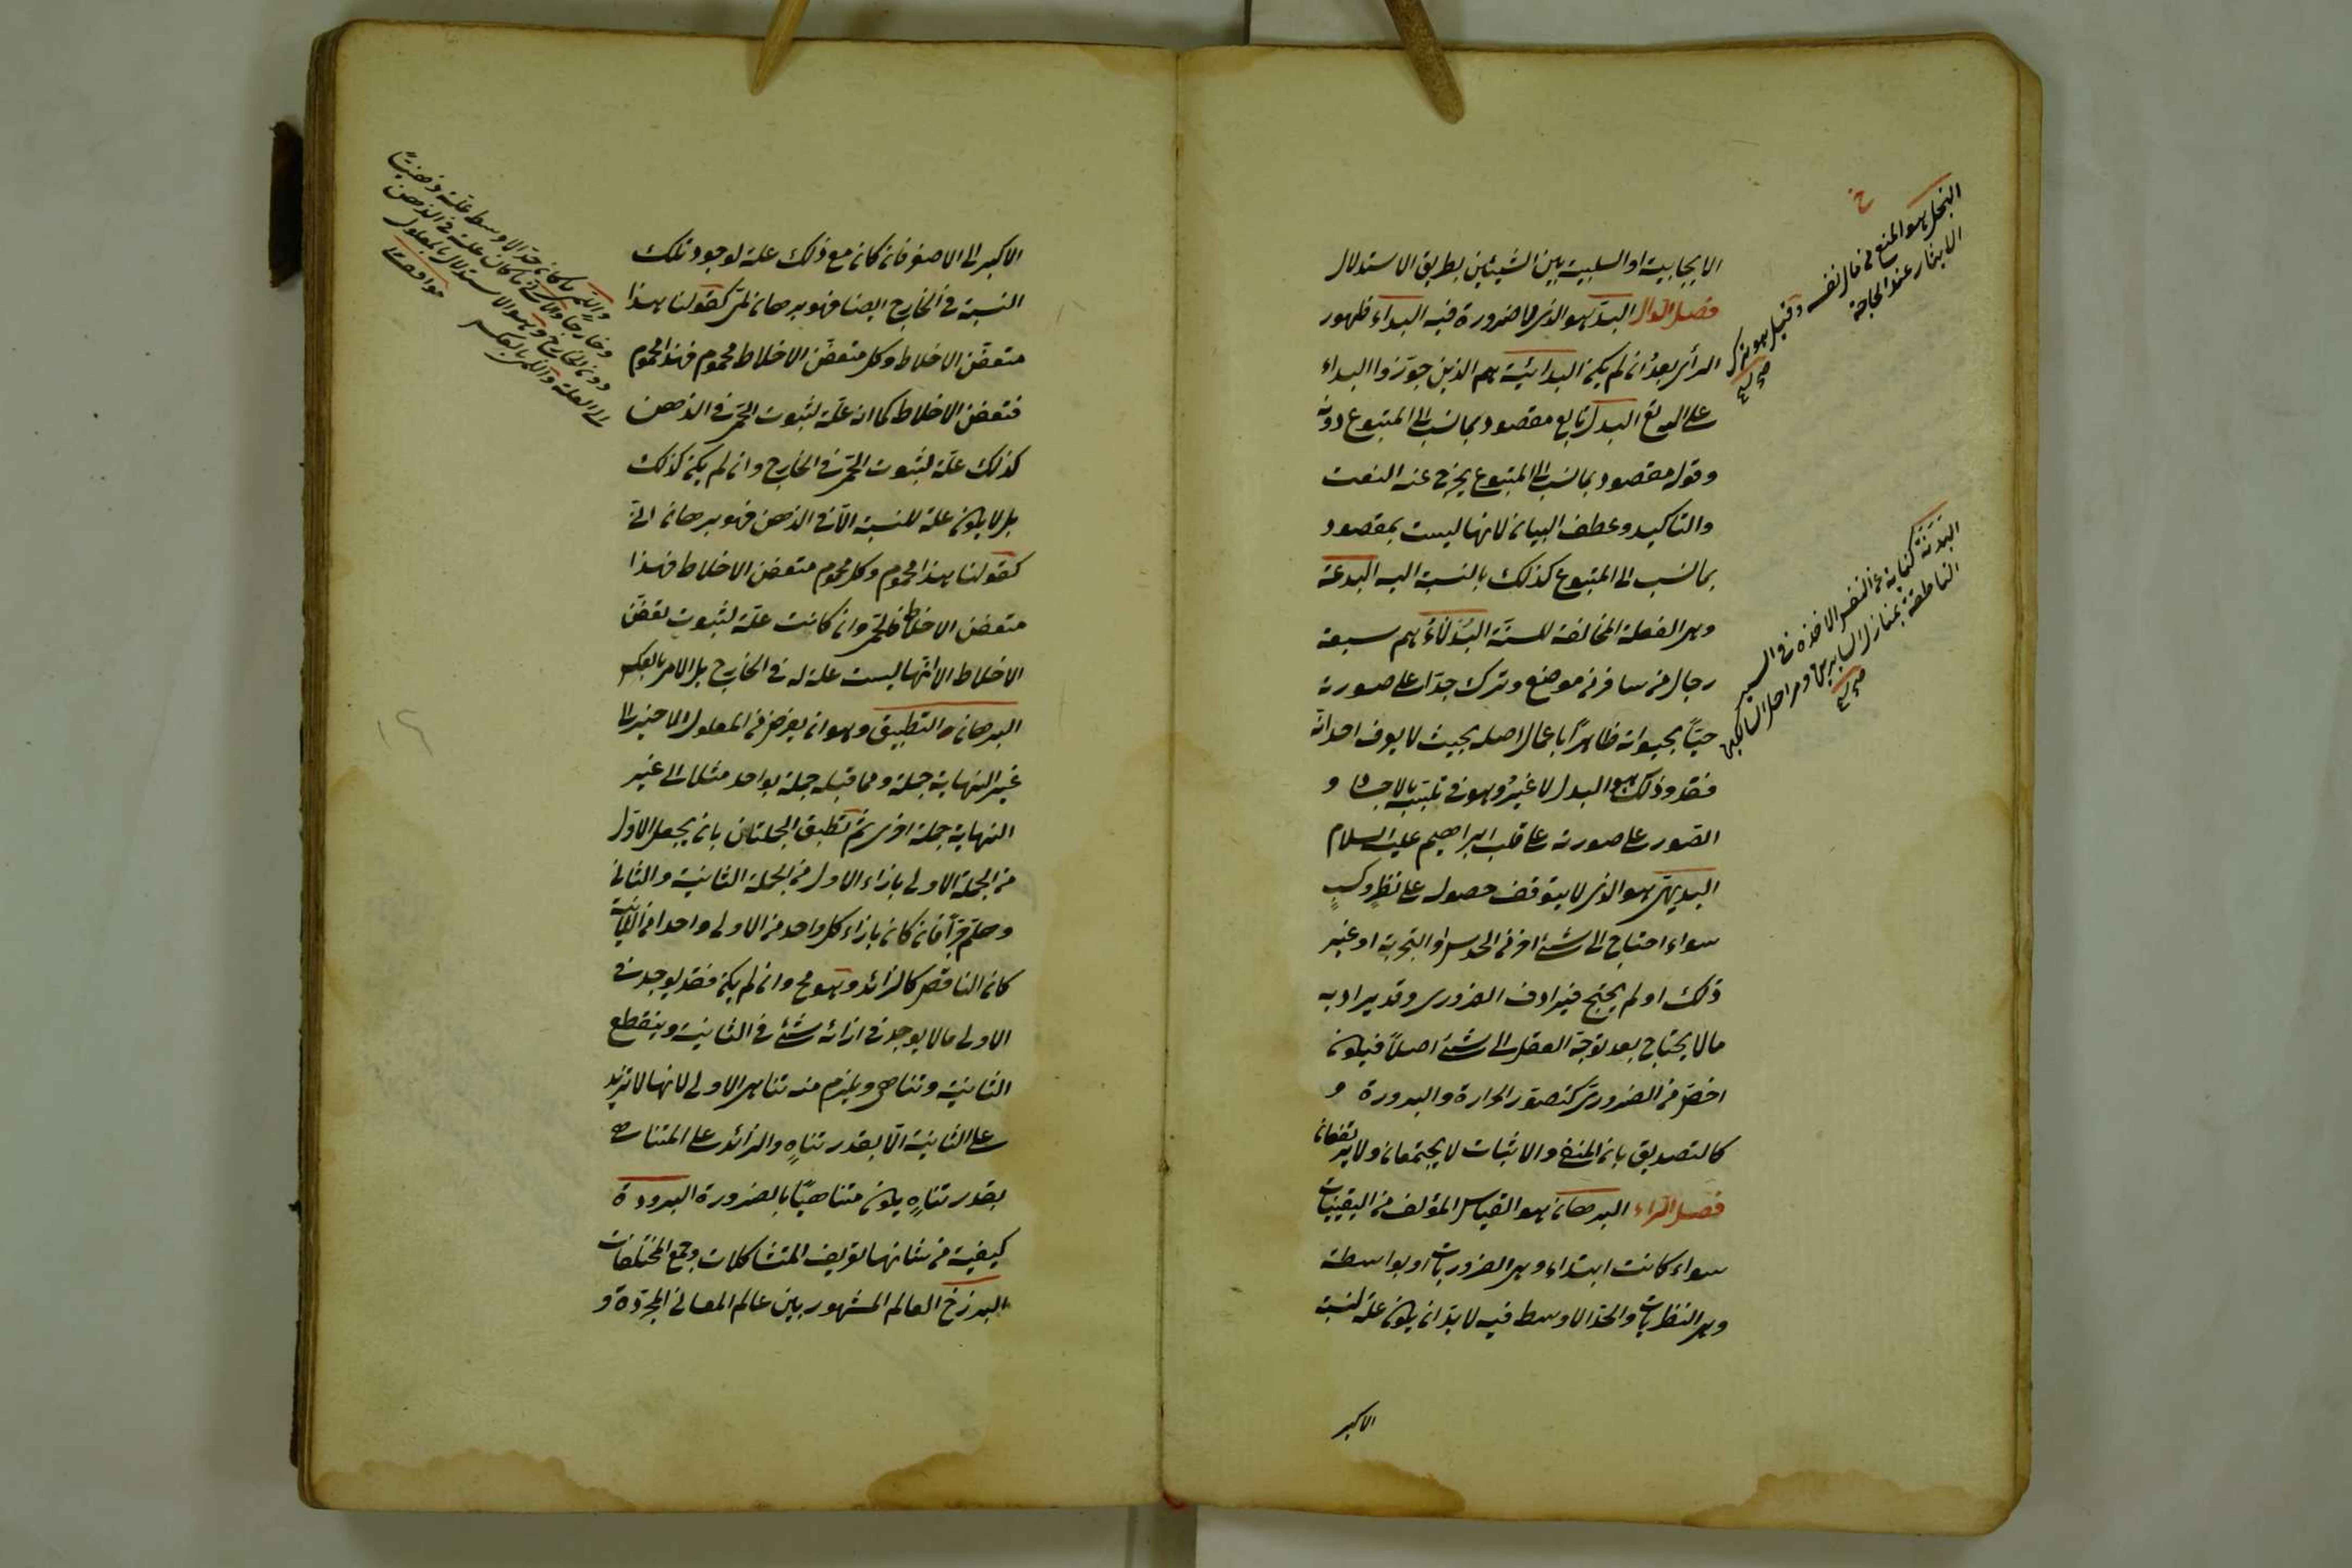 الايجابية او السلبية بين الشيئين بطريق الاستدلال
فصل الدال البدّ هو الذى لا ضرورة فيه البداء ظهور
الرأى بعد ان لم يكن البدائية هم الذين جوّزوا البداء
على الله تع البدل تابع مقصود بما نسب الى المتبوع دونه
وقوله مقصود بما نسب الى المتبوع يخرج عنه النعت
والتاكيد وعطف البيان لانها ليست بمقصود
بما نسب الى المتبوع كذلك بالنسبة اليه البدعة
وهى الفعلة المخالفة للسنّة البُدَلاءُ هم سبعة
رجال من سافر من موضع وترك جسدا على صورته
حيّاً بحيوته ظاهراً باعمال اصله بحيث لا يعرف احد انّه
فقد وذلك هو البدل لا غير وهو فى تلبّسه بالاجساد و
الصّور على صورته على قلب ابراهيم عليه السلام
البديهىّ هو الذى لا يتوقف حصوله على نظرٍ وكسبٍ
سواء احتاج الى شئ اخر من الحدس او التجربة او غير
ذلك او لم يحتج فيرادف الضرورى وقد يراد به
ما لا يحتاج بعد توجّه العقل الى شئ اصلاً فيكون
اخصّ من الضرورىّ كتصوّر الحرارة والبرودة و
كالتصديق بان النفى والاثبات لا يجتمعان ولا يرتفعان
فصل الراء البرهان هو القياس المؤلف من اليقينيات
سواء كانت ابتداء وهى الضروريات او بواسطة
وهى النظريات والحدّ الاوسط فيه لا بدّ ان يكون علة لنسبة
الاكبر
خ
البخل هو المنع من مال نفسه وقيل هو ترك
الايثار عند الحاجة
البَدَنَة كناية عن النفس الاخذة فى السير
القاطعة بمنازل السايرين ومراحل السالكين
الاكبر الى الاصغر فان كان مع ذلك علة لوجود تلك
النسبة فى الخارج ايضا فهو برهان لمّىّ كقولنا هذا
متعفّن الاخلاط وكل متعفّن الاخلاط محموم فهذا محموم
فتعفن الاخلاط كما انه علّة لثبوت الحمّى فى الذهن
كذلك علّة لثبوت الحمّى فى الخارج وان لم يكن كذلك
بل لا يكون علة للنسبة الاّ فى الذهن فهو برهان انّى
كقولنا هذا محموم وكل محموم متعفن الاخلاط فهذا
متعفن الاخلاط فالحمّى وان كانت علّة لثبوت تعفّن
الاخلاط الا انّها ليست علة له فى الخارج بل الامر بالعكس
البرهان التطبيق وهو ان يفرض من المعلول الاخير الى
غير النهاية جملة ومما قبله جملة بواحد مثلا الى غير
النهاية جملة اخرى ثم تطبق الجملتان بان يجعل الاوّل
من الجملة الاولى بازاء الاول من الجملة الثانية والثانى
وهلمّ جرّاً فان كان بازاء كل واحد من الاولى واحد من الثانية
كان الناقص كالزائد وهو مح وان لم يكن فقد يوجد فى
الاولى ما لا يوجد فى ازائه شئ فى الثانية وينقطع
الثانية وتناهى ويلزم منه تناهى الاولى لانها لا تزيد
على الثانية الّا بقدر تناهٍ والزائد على المتناهى
بقدر تناهٍ يكون متناهيًا بالضرورة البرودة
كيفية من شانها تفريق المتشاكلات وجمع المختلفات
البرزخ العالم المشهور بين عالم المعانى المجرّدة و
واللمّى ما كان حدّ الاوسط علّة ذهنيّاً
وخارجاً والانّى ما كان علة فى الذهن
دون الخارج وهو الاستدلال بالمعلول
الى العلة واللمّى بالعكس
مواقف
١٩